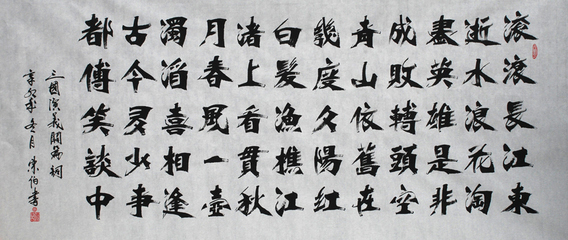 滚滚長江東
逝水浪花淘
盡英雄是非
成敗轉頭空
青山依舊在
幾度夕陽紅
白髮漁樵江
渚上看貫秋
月春風一壺
濁酒喜相逢
古今多少事
都傅笑談中
三國演義開篇詞
辛卯歲冬月榮伯書